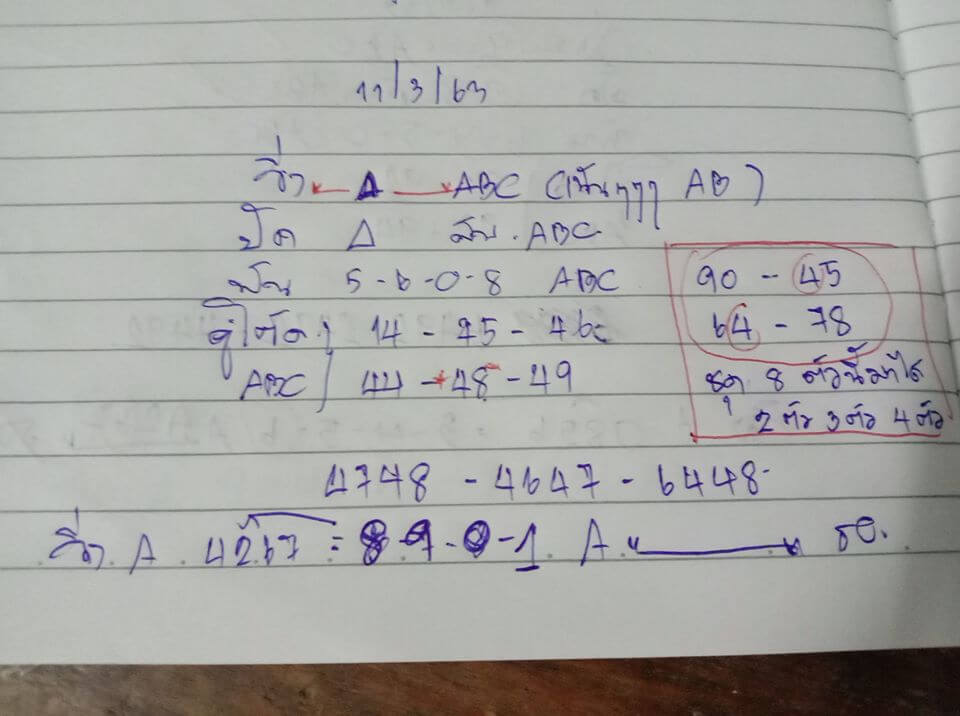 11/3/63
วิ่ง 4 ABC (เน้นๆๆๆ AB)
ปัก 4 ABC
5-6-0-8 ABC
14 - 45 - 46
ABC 44 - 48 - 49
90 - 45
64 - 78
ชุด 8 ตัวนี้มาได้
2 ตัว 3 ตัว 4 ตัว
4748 - 4647 - 6448
วิ่ง. A. 4267 = 8-9-0-1. A.